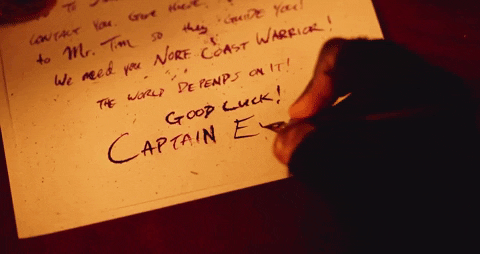 CONTACT YOU. GIVE
to MR. TIM so they GUIDE YOU!
WE NEED YOU NORE COAST WARRIOR!
THE WORLD DEPENDS ON IT!
GOOD LUCK!
CAPTAIN E